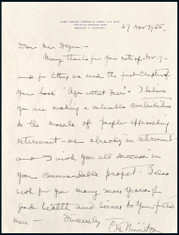 27 Nov 1955
Dear Mrs
Many thanks for your note of Nov 17 -
and for letting me read the first chapter of
your book "Age without". I believe
you are making a valuable contribution
to the morale of people approaching
retirement - or already in retirement
and I wish you all success in
your commendable project. I also
wish for you many more years of
good health and service to your fellow
men - Sincerely
C.W. Nimitz